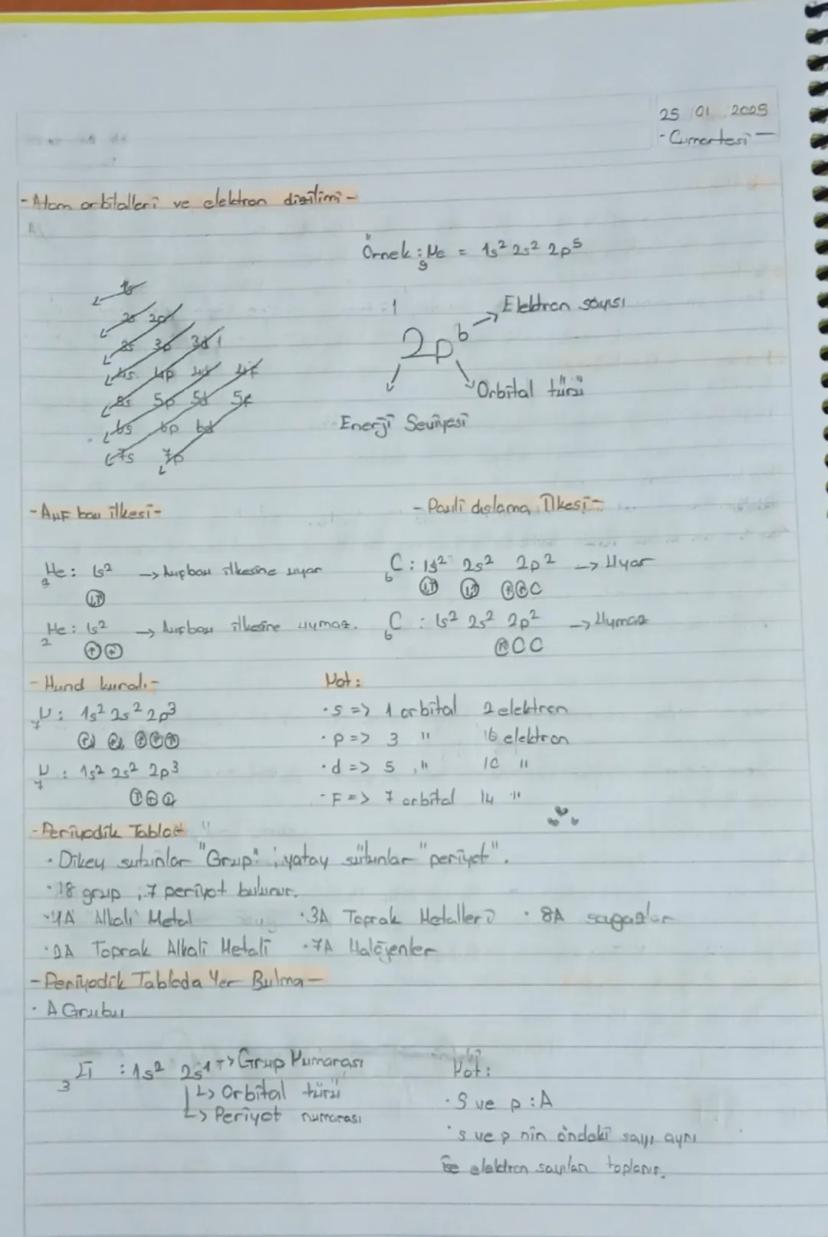 25 01 2025
- Cumartesi -
- Atom orbitalleri ve elektron dizilimi -
Örnek : 9Ne = 1s² 2s² 2p⁵
1s
2s 2p
3s 3p 3d
4s 4p 4d 4f
5s 5p 5d 5f
6s 6p 6d
7s 7p
2p⁶
Elektron sayısı
Orbital türü
Enerji Seviyesi
- Aufbau ilkesi -
2He : 1s² -> Aufbau ilkesine uyar
2He : 1s² -> Aufbau ilkesine uymaz.
- Pauli dışlama İlkesi -
6C : 1s² 2s² 2p² -> Uyar
6C : 1s² 2s² 2p² -> Uymaz
- Hund kuralı -
7N : 1s² 2s² 2p³
7N : 1s² 2s² 2p³
Not :
· s => 1 orbital 2 elektron
· p => 3 " 6 elektron
· d => 5 " 10 "
· F => 7 orbital 14 "
- Periyodik Tablo -
· Dikey sutunlar "Grup" ; yatay sütunlar "periyot".
· 18 grup , 7 periyot bulunur.
· 1A Alkali Metal · 3A Toprak Metalleri · 8A soygazlar
· 2A Toprak Alkali Metali · 7A Halojenler
- Periyodik Tabloda Yer Bulma -
· A Grubu
3Li : 1s² 2s¹ -> Grup Numarası
-> Orbital türü
-> Periyot numarası
Not :
· S ve p : A
· s ve p nin öndeki sayı aynı
ise elektron sayıları toplanır.